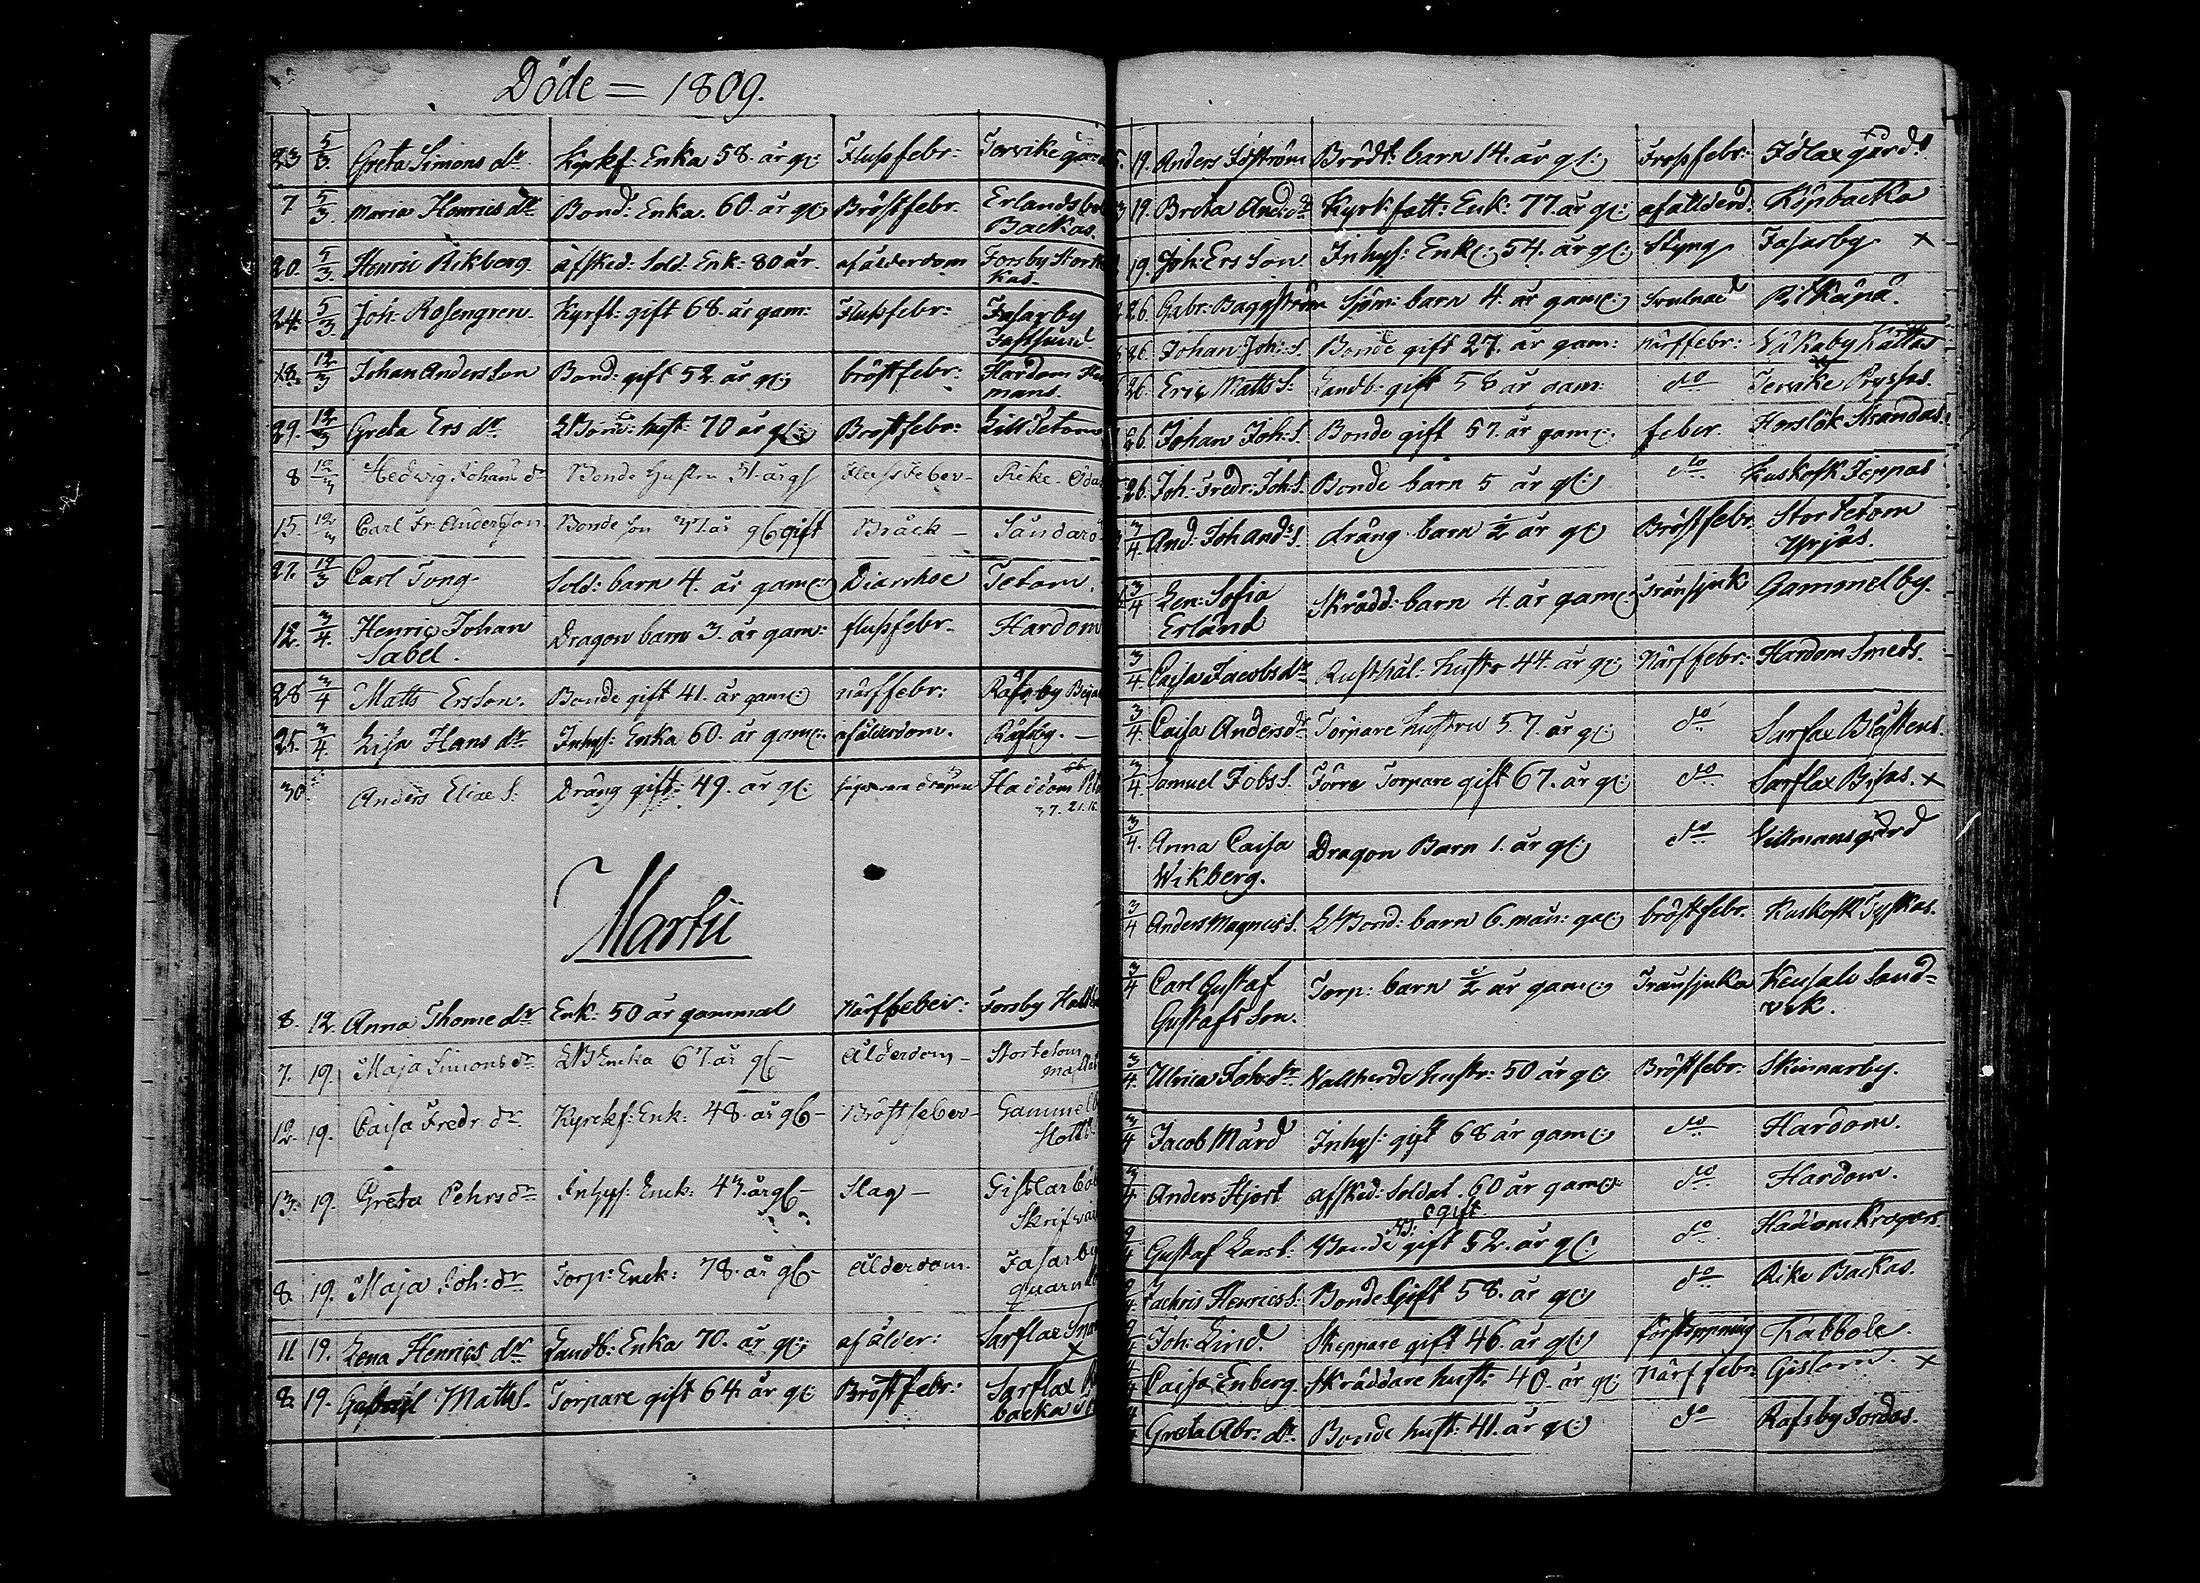 Döde = 1809.
23 5/3. Greta Simons dr Kyrkf: Enka 58. år gl: Flussfebr:
7 5/3. Maria Henrics dr Bond: Enka. 60. år gl: Bröstfebr. Erlandsbö
Backas.
20. 5/3. Henric Rikberg afsked: Sold: Enk: 80 år. af ålderdom Forsby Stor
kas.
24. 5/3 Joh: Rosengren. Kyrft: gift 68. år gam: Flussfebr: Fasarby
Fastlund
18. 12/3 Johan Andersson Bond: gift 52. år gl: bröstfebr: Hardom
mans.
29. 12/3 Greta Ers dr LBond: hust: 70 år gl: Bröstfebr: Lill Tetom
8 12/3 Hedwig Johans dr Bonde Hustru 51. år gl Fluss Feber
15. 12/3 Carl Fr. Andersson Bonde son 27. år gl gift Bråck Sandarö
27. 12/3 Carl Tong Sold: barn 4. år gam: Diarrhoe Tetom.
12. 3/4. Henric Johan Dragon barn 3. år gam: flussfebr. Hardom
Sabel.
28 3/4 Matts Ersson. Bonde gift 41. år gam: närffebr: Räfsby
25. 3/4. Lisa Hans dr Inhys: Enka 60. år gam: af ålderdom. Räfsby.
30. Anders Eliæ S. Dräng gift: 49. år gl: Hardom
Martii
8. 12. Anna Thome dr Enk: 50 år gammal Närffeber: Forsby
7. 19. Maja Simons dr LB Enka 67. år gl Ålderdom Stortetom
12. 19. Caisa Fredr. dr Kyrckf: Enk: 48. år gl Bröstfeber Gammelb
13. 19. Greta Pehrs dr Inhys: Enck: 43. år gl Slag Gislarböl
Skrifvar
8. 19. Maja Joh: dr Torp: Enck: 78. år gl Ålderdom Fasarby
quarn
11. 19. Lena Henrics dr Landb: Enka 70. år gl: af ålder: Sarflax
8. 19. Gabriel Matts. Torpare gift 64. år gl: Bröstfebr: Sarflax
backa
19. Anders Söström Brödt: barn 14. år gl: Frossfebr: Islax gård
19. Breta And: dr Kyrk: fatt: Enk: 77. år gl: af ålderd: Köpbacka
19. Joh: Ers Son Inhys: Enkl: 54. år gl: Styng Fasarby x
26. Gabr: Baggström Sjöm: barn 4. år gam: Svulnad Pitkäpä.
26. Johan Joh: S. Bonde gift 27. år gam: närffebr: Wikaby
26. Eric Matts S: Landb: gift 58 år gam: do Tervike Pryssas.
26. Johan Joh: S. Bonde gift 57. år gam: feber. Horslök Strandas.
26. Joh: Fredr: Joh: S. Bonde barn 5 år gl: do Kuskosk Jeppas
3/4. And: Joh And: S. dräng barn 1/2 år gl: Bröstfebr. Stor Tetom
Yrjäs.
3/4 Len: Sofia Skrädd: barn 4. år gam: Trånsjuk Gammelby.
Erland
3/4. Caisa Jacobs dr Rusthål: hustr 44. år gl: Närffebr: Hardom Smeds.
3/4. Caisa Anders dr Torpare hustru 57. år gl: do Sarflax
3/4. Samuel Jobs S. Förre Torpare gift 67. år gl: do Sarflax Bisas. x
3/4. Anna Caisa Dragon Barn 1. år gl: do Villmansgård
Wikberg.
3/4 Anders Magnus S. LBond: barn 6. mån: ga: bröstfebr. Kuskosk Tyskas.
3/4 Carl Gustaf Torp: barn 1/2 år gam: Trånsjuka Keusala Sand=
Gustafs Son. vik.
3/4. Ulrica Joh: dr Vallherde hustr: 50 år gl: Bröstfebr: Skinnarby.
3/4 Jacob Mård Inhys: gift 68 år gam: do Hardom.
3/4 Anders Hjort afsked: Soldat. 60 år gam: do Hardom.
ogift
9/4 Gustaf Lars S: Bonde gift 52. år gl: do Hardom Krögars.
9/4 Zachris Henrics S: Bonde Gift 58. år gl: do Rike Backas.
9/4 Joh: Lind. Skeppare gift 46. år gl: förstoppning Kabböle.
4/4 Caisa Enberg. Skräddare hust: 40. år gl: Närffebr: Gislom. x
4/4 Greta Abr: dr. Bonde hust: 41. år gl: do Räfsby Jordas.